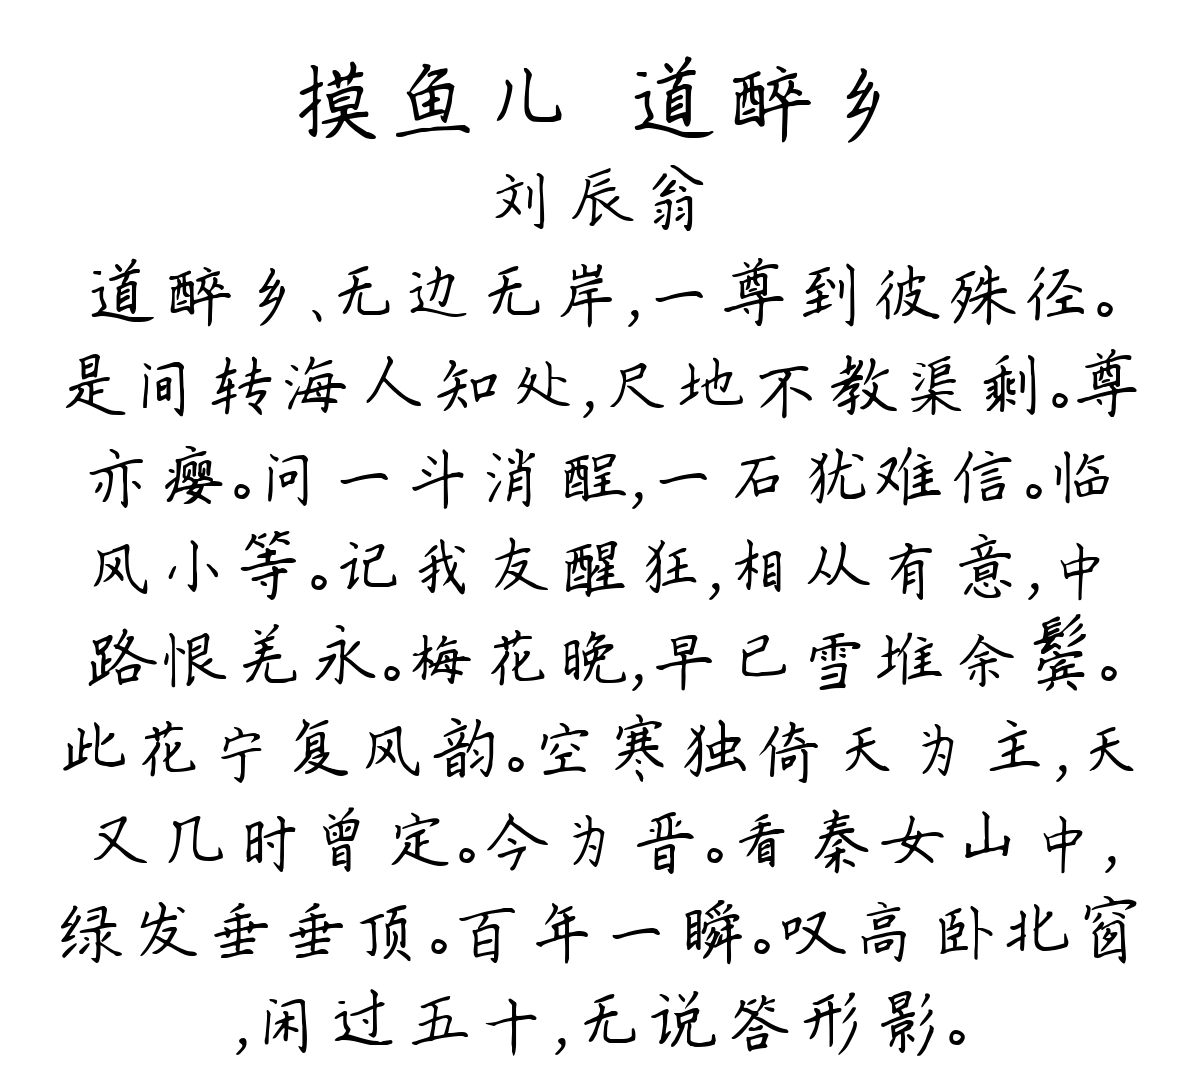 摸鱼儿 道醉乡
刘辰翁
道醉乡、无边无岸,一尊到彼殊径。
是间转海人知处,尺地不教渠剩。尊
亦瘿。问一斗消酲,一石犹难信。临
风小等。记我友醒狂,相从有意,中
路恨羌永。梅花晚,早已雪堆余鬓。
此花宁复风韵。空寒独倚天为主,天
又几时曾定。今为晋。看秦女山中,
绿发垂垂顶。百年一瞬。叹高卧北窗
,闲过五十,无说答形影。